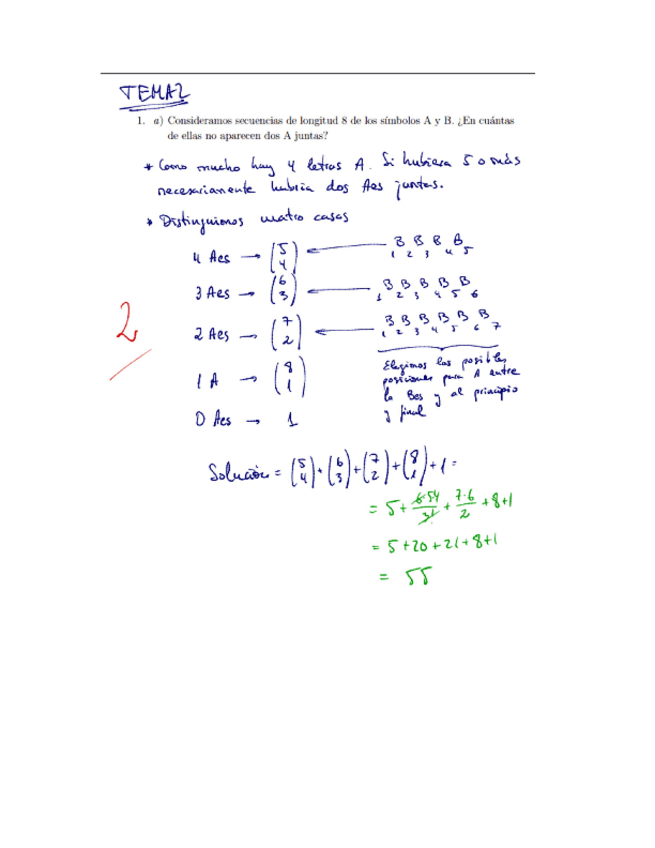 TEMA2
1. a) Consideramos secuencias de longitud 8 de los símbolos A y B. ¿En cuántas
de ellas no aparecen dos A juntas?
* Como mucho hay 4 letras A. Si hubiera 5 o más
necesariamente habría dos Aes juntas.
* Distinguimos cuatro casos
4 Aes → (5 4) ← B B B B
1 2 3 4 5
3 Aes → (6 3) ← B B B B B
1 2 3 4 5 6
2 Aes → (7 2) ← B B B B B B
1 2 3 4 5 6 7
2
1 A → (8 1)
0 Aes → 1
Elegimos las posibles
posiciones para A entre
la Bes y al principio
y final
Solución = (5 4) + (6 3) + (7 2) + (8 1) + 1 =
= 5 + 6·5·4/3! + 7·6/2 + 8+1
= 5 + 20 + 21 + 8+1
= 55